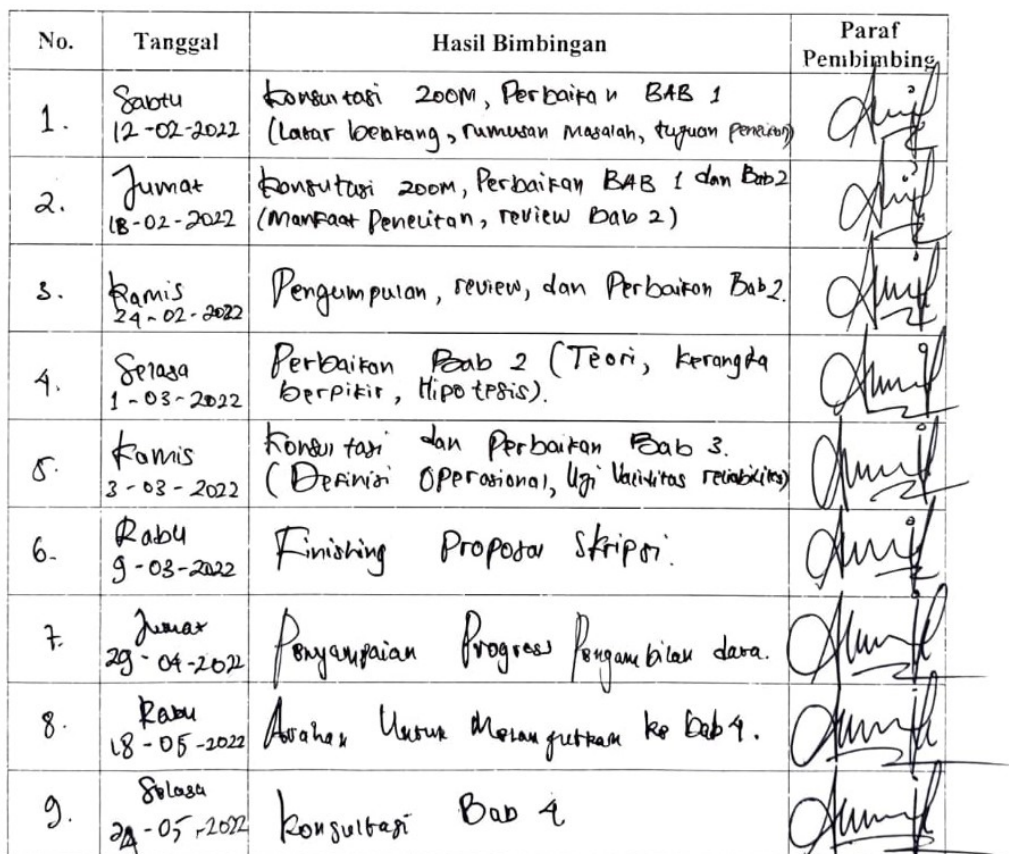 No. Tanggal Hasil Bimbingan Paraf Pembimbing
1. Sabtu 12-02-2022 Konsultasi ZOOM, Perbaikan BAB 1
(Latar belakang, rumusan masalah, tujuan penelitian)
2. Jumat 18-02-2022 Konsultasi ZOOM, Perbaikan BAB 1 dan Bab 2
(Manfaat Penelitian, review Bab 2)
3. Kamis 24-02-2022 Pengumpulan, review, dan Perbaikan Bab 2.
4. Selasa 1-03-2022 Perbaikan Bab 2 (Teori, kerangka
berpikir, Hipotesis).
5. Kamis 3-03-2022 Konsultasi dan Perbaikan Bab 3.
(Definisi Operasional, Uji Validitas reliabilitas)
6. Rabu 9-03-2022 Finishing Proposal Skripsi.
7. Jumat 29-04-2022 Penyampaian Progress Pengambilan data.
8. Rabu 18-05-2022 Arahan Untuk Melanjutkan ke bab 4.
9. Selasa 24-05-2022 Konsultasi Bab 4